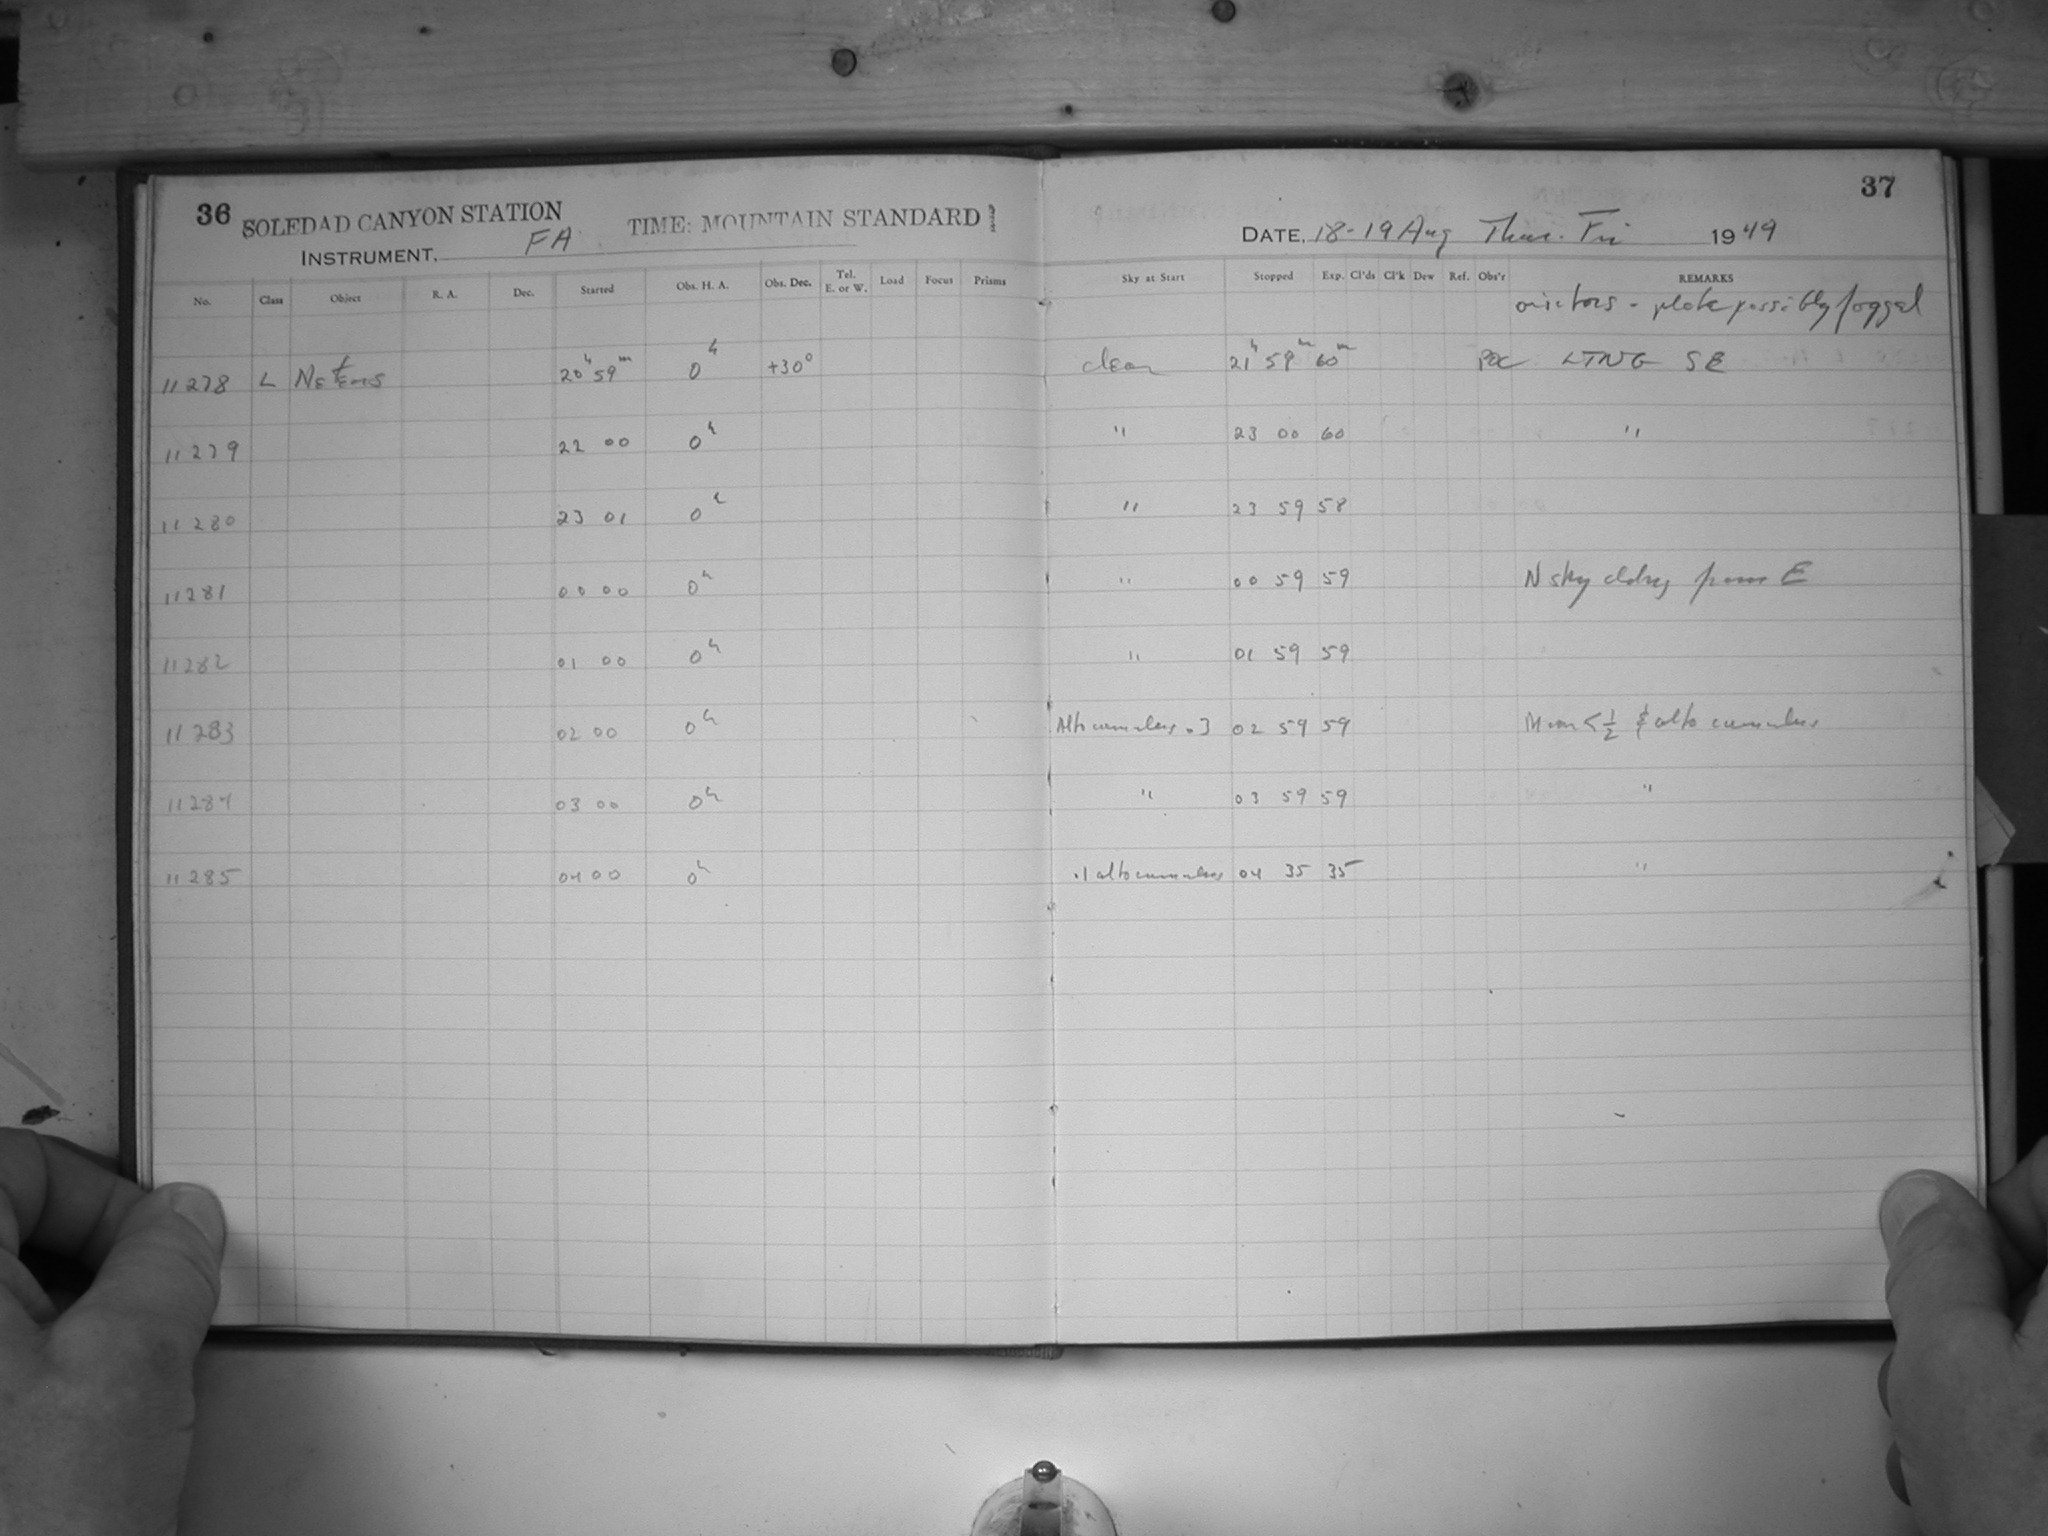 36 SOLEDAD CANYON STATION TIME: MOUNTAIN STANDARD
INSTRUMENT, FA
No. Class Object R. A. Dec. Started Obs. H. A. Obs. Dec. Tel. E. or W. Load Focus Prisms
11278 L 20h 59m 0h +30°
11279 22 00 0h
11280 23 01 0h
11281 00 00 0h
11282 01 00 0h
11283 02 00 0h
11284 03 00 0h
11285 04 00 0h
37
DATE, 18-19 Aug Thur. Fri 1949
Sky at Start Stopped Exp. Cl'ds Cl'k Dew Ref. Obs'r REMARKS
- plate possibly fogged
clear 21h 59m 60m LTNG SE
" 23 00 60 "
" 23 59 58
" 00 59 59 N sky cldng from E
" 01 59 59
Alto cumulus .3 02 59 59 Moon < 1/2 & alto cumulus
" 03 59 59 "
.1 alto cumulus 04 35 35 "